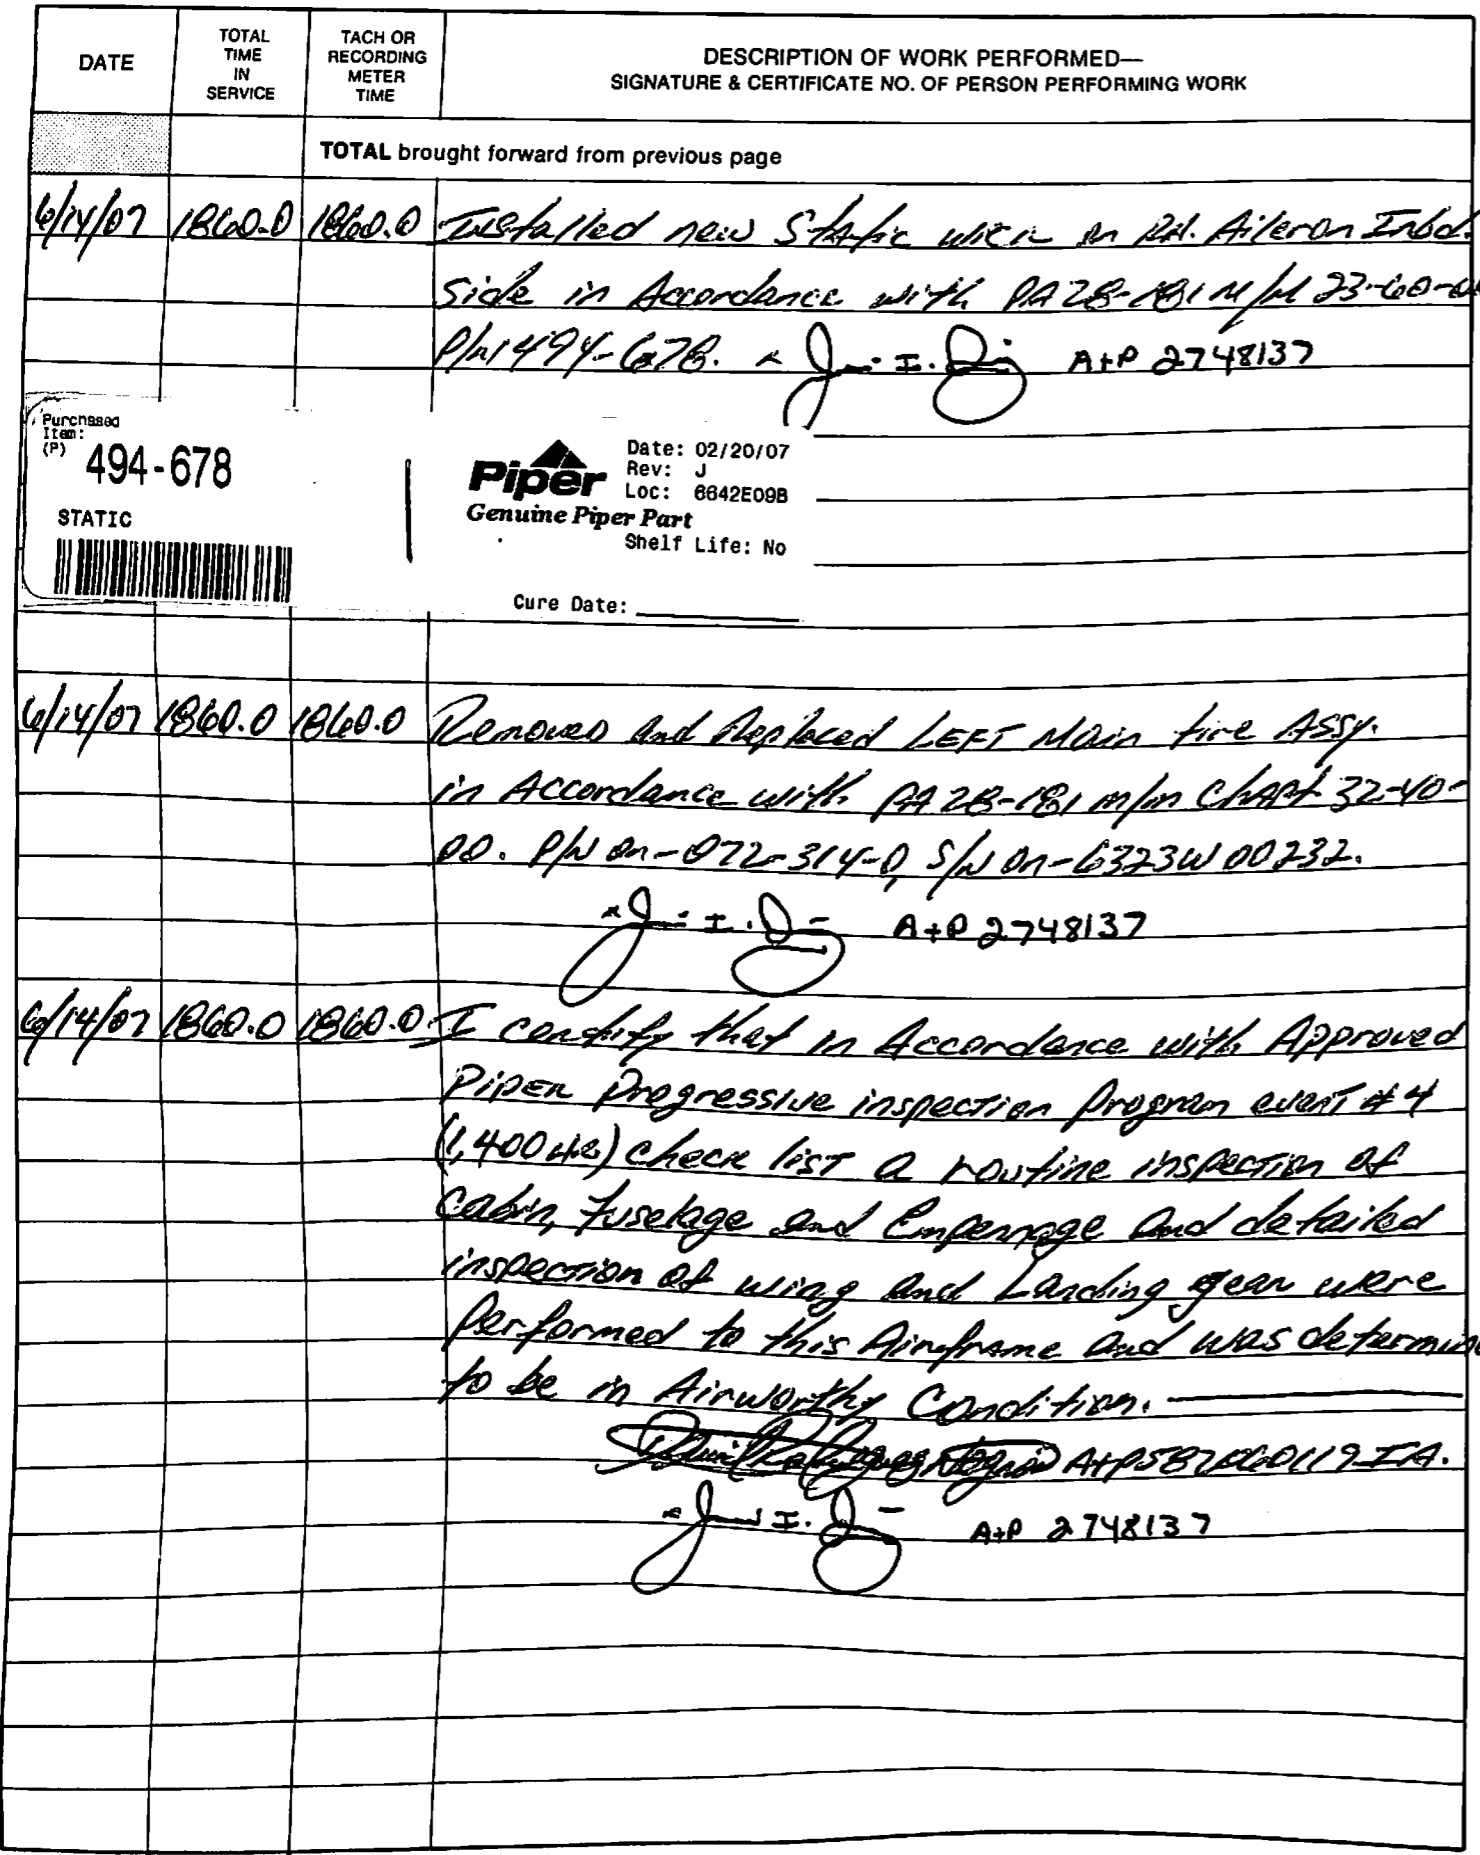 DATE
TOTAL
TIME
IN
SERVICE
TACH OR
RECORDING
METER
TIME
DESCRIPTION OF WORK PERFORMED—
SIGNATURE & CERTIFICATE NO. OF PERSON PERFORMING WORK
TOTAL brought forward from previous page
6/14/07 1860.0 1860.0 Installed new Static wick on RH. Aileron Inbd.
side in Accordance with PA28-181 M/M 23-60-
P/N 494-678. A+P 2748137
Purchased
Item:
(P)
494-678
STATIC
Piper
Genuine Piper Part
Date: 02/20/07
Rev: J
Loc: 6642E09B
Shelf Life: No
Cure Date:
6/14/07 1860.0 1860.0 Removed and Replaced LEFT Main tire Assy.
in Accordance with PA28-181 m/m Chapt 32-40-
00. P/N on-072-314-0, S/N on-6323W00232.
I. A+P 2748137
6/14/07 1860.0 1860.0 I certify that in Accordance with Approved
Piper Progressive inspection Program event #4
(1,400 HR) check list a routine inspection of
Cabin, Fuselage and Empennage and detailed
inspection of wing and Landing gear were
Performed to this Airframe and was
to be in Airworthy Condition.
A+P IA.
I. A+P 2748137